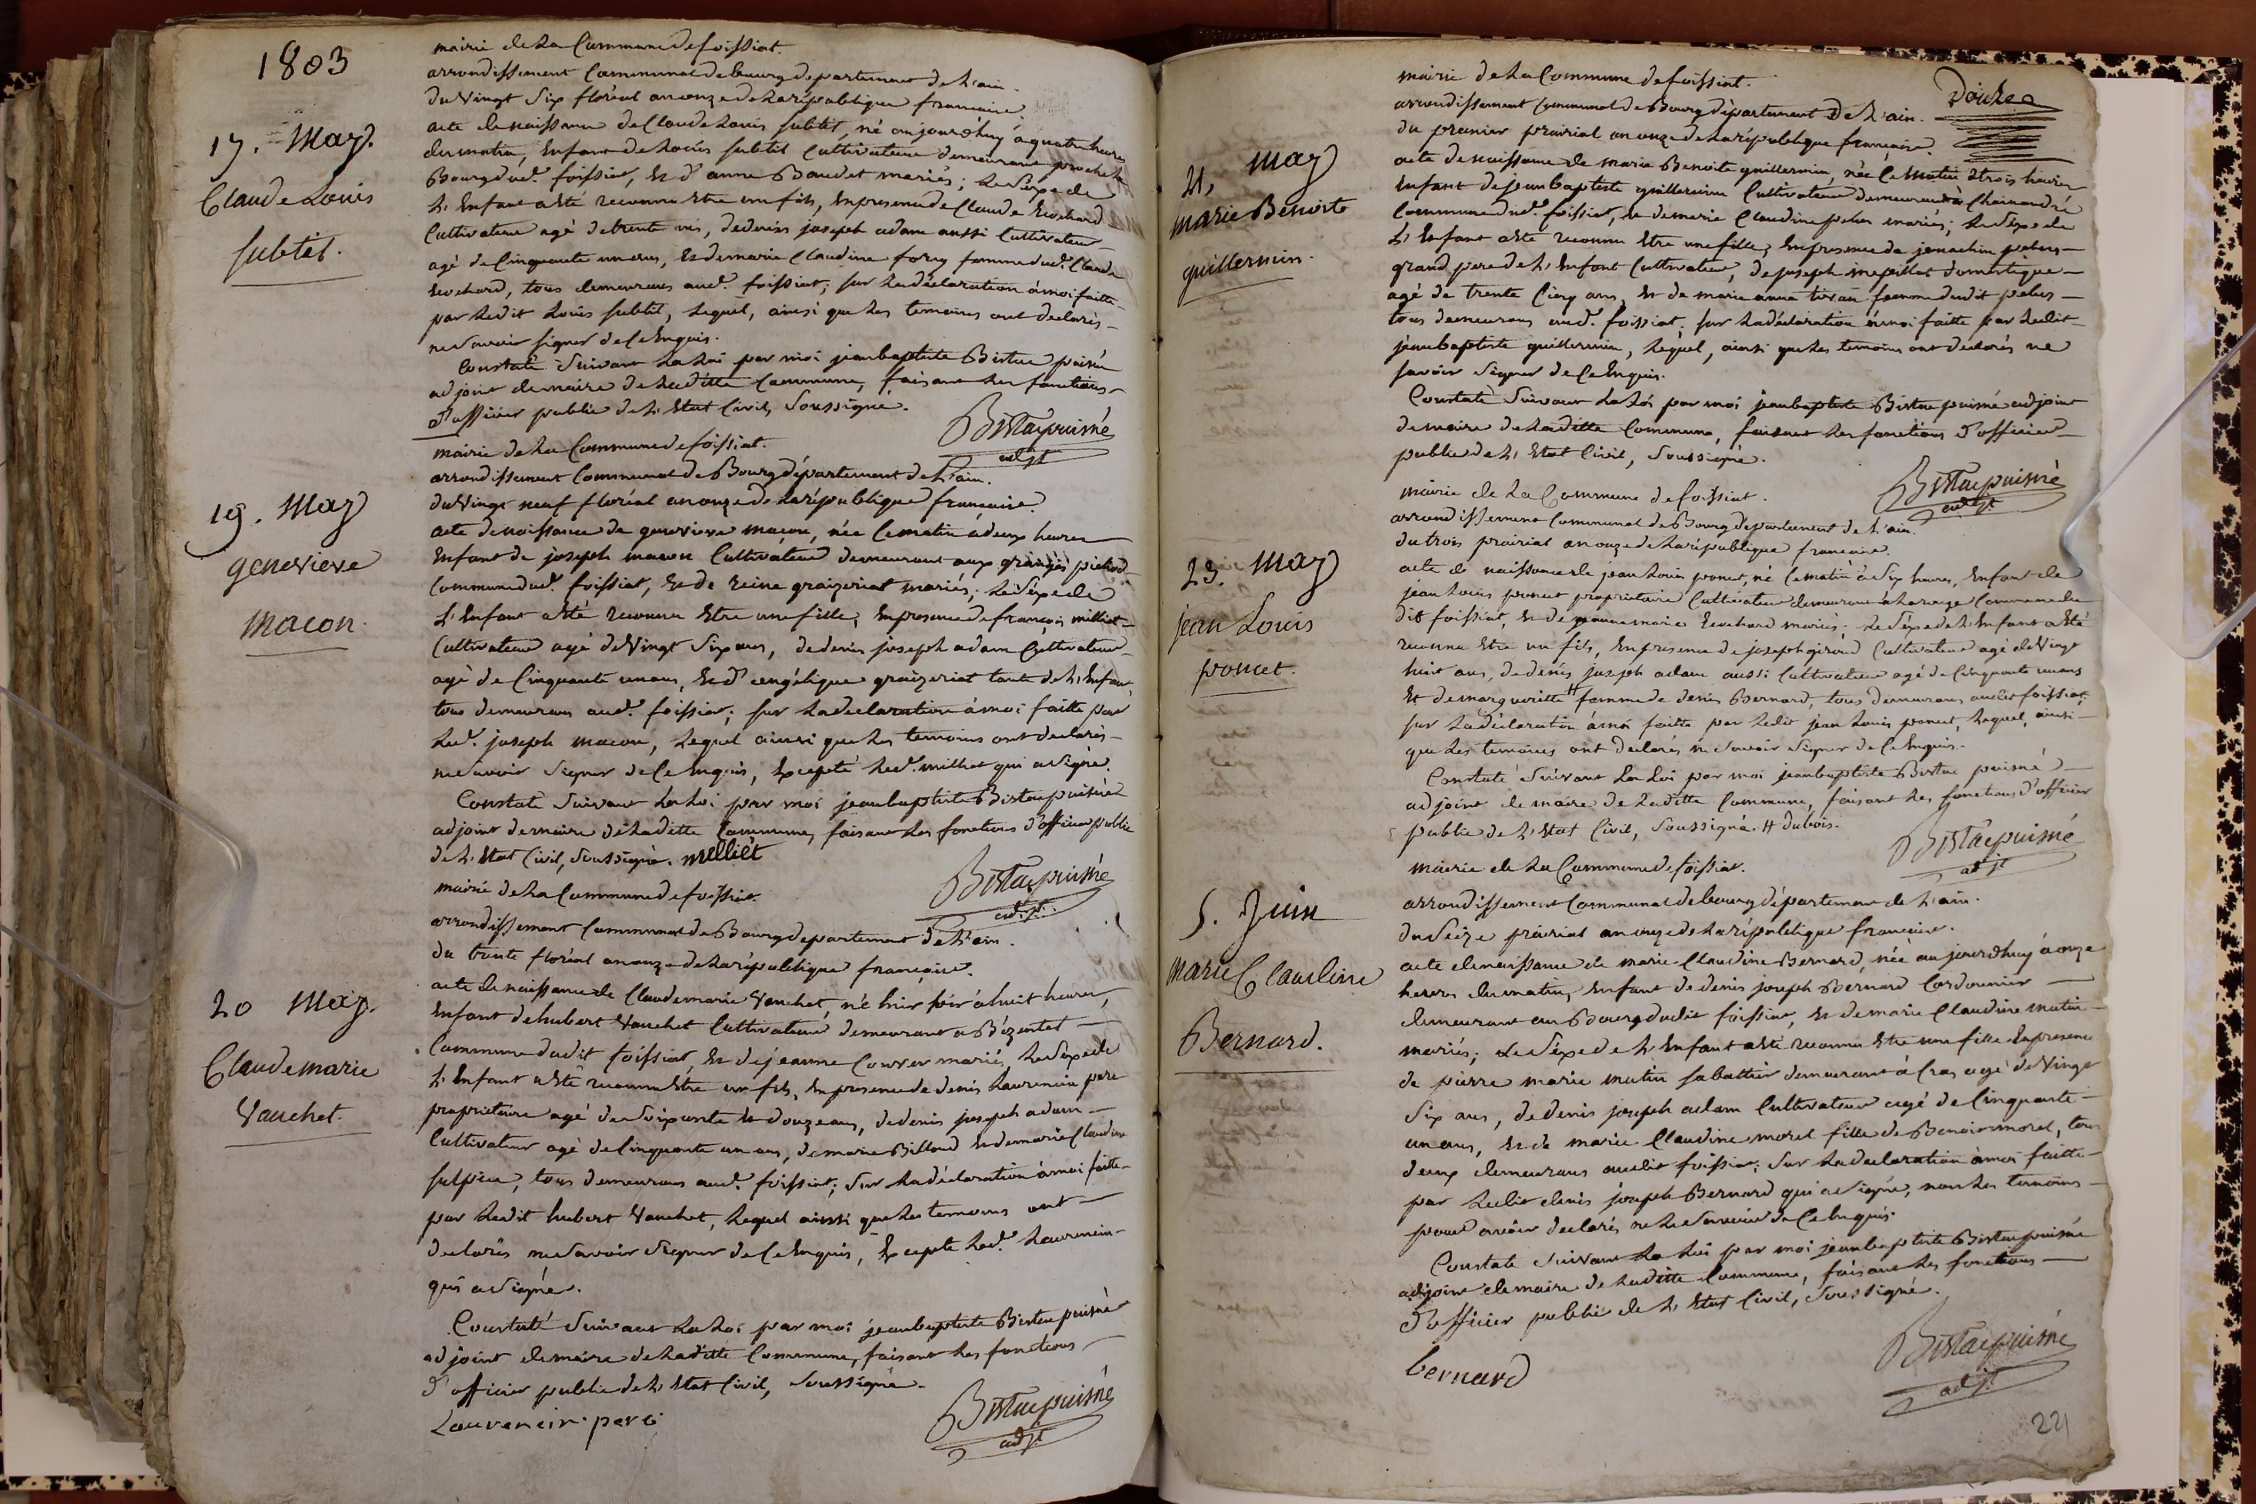 1803
mairie de la Commune de foissiat.
arrondissement Communal de bourg departement de l'ain.
du Vingt Six floréal an onze de la république francaise.
17. May.
Claude Louis
subtil.
acte de naissance de Claude Louis subtil, né aujourd'huy à quatre heures
du matin, Enfant de Louis subtil Cultivateur demeurant proche le
Bourg dud. foissiat, et d'anne Baudet mariés; le Sexe de
l'Enfant a été reconnu Etre un fils, En presence de Claude Rochard
Cultivateur agé de trente six, de denis joseph adam aussi Cultivateur
agé de Cinquante un ans, et de marie Claudine fory femme dud. Claude
Rochard, tous demeurans aud. foissiat; sur la déclaration à moi faitte
par ledit Louis subtil, lequel, ainsi que les temoins ont declarés
ne savoir signer de Ce Enquis.
Constaté Suivant la loi par moi jean baptiste Bistac puisné
adjoint de maire de laditte Commune, faisant les fonctions
d'officier public de l'Etat Civil, Soussigné.
Bistac puisné
adjt
mairie de la Commune de foissiat.
arrondissement Communal de Bourg département de l'ain.
du Vingt neuf floréal an onze de la république francaise.
19. May
genevieve
macon.
acte de naissance de genevieve macon, née Ce matin à deux heures
Enfant de joseph macon Cultivateur demeurant aux granges pichod
Commune dud. foissiat, et de Reine graizeriat mariés; le Sexe de
l'Enfant a été reconnu Etre une fille, En presence de francois milliet
Cultivateur agé de Vingt Six ans, de denis joseph adam Cultivateur
agé de Cinquante un ans, et d'angélique graizeriat tante de l'Enfant,
tous demeurans aud. foissiat; sur la declaration à moi faitte par
led. joseph macon, lequel ainsi que les temoins ont declarés
ne savoir Signer de Ce Enquis, Excepté led. milliet qui a Signé.
Constaté Suivant la loi par moi jean baptiste Bistac puisné
adjoint de maire de laditte Commune, faisant les fonctions d'officier public
de l'Etat Civil, Soussigné. milliet
Bistac puisné
adjt
mairie de la Commune de foissiat.
arrondissement Communal de Bourg departement de l'ain.
du trente floréal an onze de la république française.
20 May.
Claude marie
Vauchet.
acte de naissance de Claude marie Vauchet, né hier soir à huit heures,
Enfant de hubert Vauchet Cultivateur demeurant à Bézentet
Commune dudit foissiat, et de jeanne Convert mariés, le Sexe de
l'Enfant a été reconnu Etre un fils, En presence de denis Laurencin pere
proprietaire agé de Soixante et douze ans, de denis joseph adam
Cultivateur agé de Cinquante un ans, de marie Billoud et de marie Claudine
sulpice, tous demeurans aud. foissiat; Sur la déclaration à moi faitte
par ledit hubert Vauchet, lequel ainsi que les temoins ont
declarés ne Savoir Signer de Ce Enquis, Excepté led. Laurencin
qui a Signé.
Constaté Suivant la loi par moi jean baptiste Bistac puisné
adjoint de maire de laditte Commune, faisant les fonctions
d'officier public de l'Etat Civil, Soussigné.
Laurencin pere
Bistac puisné
adjt
mairie de la Commune de foissiat.
arrondissement Communal de Bourg département de l'ain.
du premier prairial an onze de la république française.
21. May
marie Benoite
guillermin.
acte de naissance de marie Benoite guillermin, née Ce matin à trois heures
Enfant de jean baptiste guillermin Cultivateur demeurant à Chainandré
Commune dud. foissiat, et de marie Claudine pelus mariés; le Sexe de
l'Enfant a été reconnu Etre une fille, En presence de joachim pelus
grand pere de l'Enfant Cultivateur, de joseph domestique
agé de trente Cinq ans, et de marie anne femme dudit pelus
tous demeurans aud. foissiat; sur la déclaration à moi faitte par ledit
jean baptiste guillermin, lequel, ainsi que les temoins ont declarés ne
savoir Signer de Ce Enquis.
Constaté Suivant la loi par moi jean baptiste Bistac puisné adjoint
de maire de laditte Commune, faisant les fonctions d'officier
public de l'Etat Civil, Soussigné.
Bistac puisné
adjt
mairie de la Commune de foissiat.
arrondissement Communal de Bourg departement de l'ain.
du trois prairial an onze de la république francaise.
23. May
jean Louis
poncet.
acte de naissance de jean Louis poncet, né Ce matin à Six heures, Enfant de
jean Louis poncet proprietaire Cultivateur demeurant à Commune du
dit foissiat, et de marie Rochard mariés; le Sexe de l'Enfant a été
reconnu Etre un fils, En presence de joseph giroud Cultivateur agé de Vingt
huit ans, de denis joseph adam aussi Cultivateur agé de Cinquante un ans
Et de marguerite # femme de denis Bernard, tous demeurans audit foissiat,
sur la déclaration à moi faitte par ledit jean Louis poncet, lequel, ainsi
que les temoins ont declarés ne Savoir Signer de Ce Enquis.
Constaté Suivant la Loi par moi jean baptiste Bistac puisné
adjoint de maire de laditte Commune, faisant les fonctions d'officier
public de l'Etat Civil, Soussigné. # dubois.
Bistac puisné
adjt
mairie de la Commune de foissiat.
arrondissement Communal de bourg département de l'ain.
du Seize prairial an onze de la république française.
5. Juin
marie Claudine
Bernard.
acte de naissance de marie Claudine Bernard, née aujourd'huy à onze
heures du matin, Enfant de denis joseph Bernard Cordonnier
demeurant au Bourg dudit foissiat, et de marie Claudine mutin
mariés; le Sexe de l'Enfant a été reconnu Etre une fille En presence
de pierre marie mutin sabattier demeurant à Cras agé de Vingt
Six ans, de denis joseph adam Cultivateur agé de Cinquante
un ans, et de marie Claudine morel fille de Benoit morel, tous
deux demeurans audit foissiat; Sur la declaration à moi faitte
par ledit denis joseph Bernard qui a Signé, non les temoins
pour avoir declarés ne le Savoir de Ce Enquis.
Constaté Suivant la loi par moi jean baptiste Bistac puisné
adjoint de maire de laditte Commune, faisant les fonctions
d'officier public de l'Etat Civil, Soussigné.
bernard
Bistac puisné
adjt
221